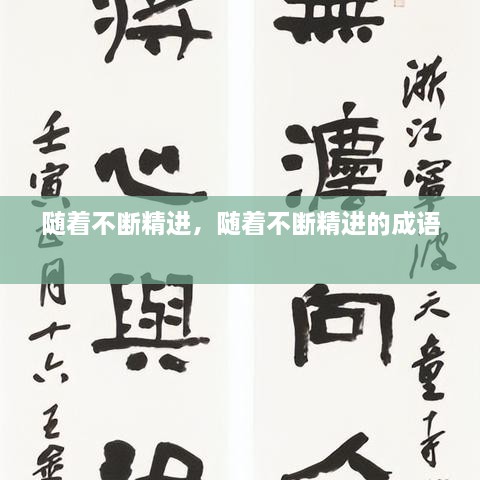 無瀍向
浙江寧波天童寺
將心與
壬寅正月十六王金
随着不断精进，随着不断精进的成语